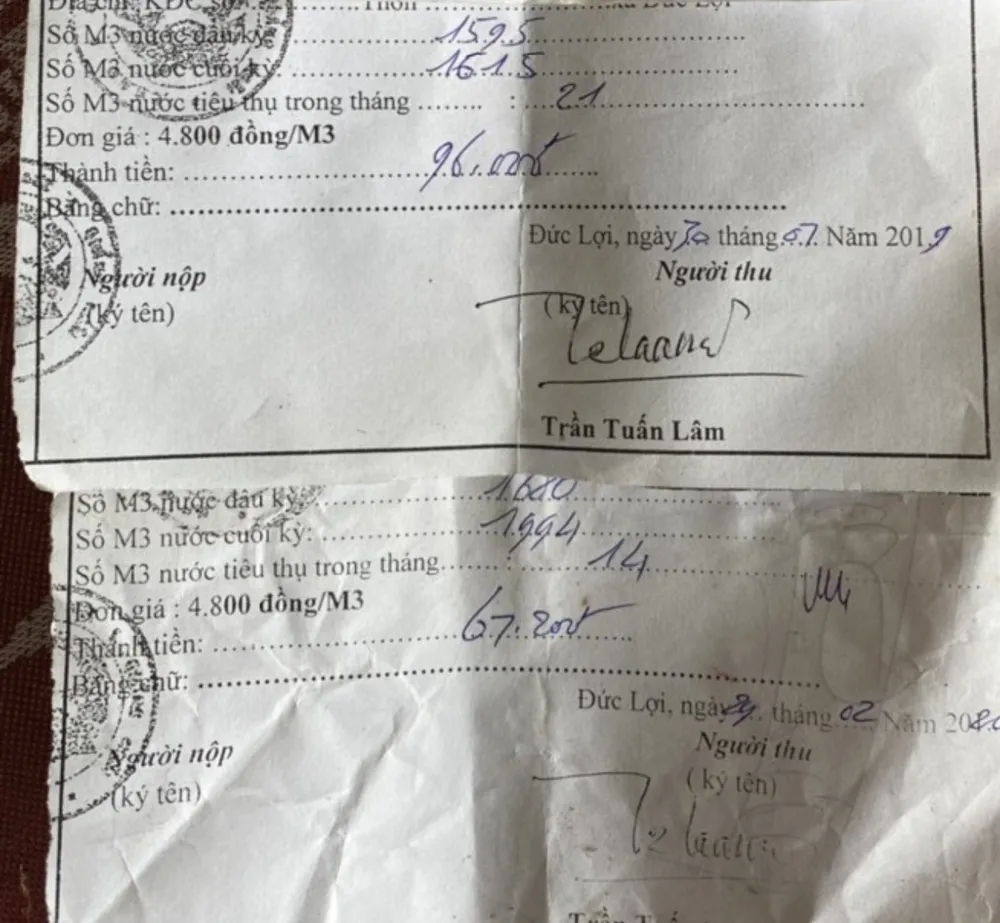 Địa chỉ: KDC số ........ Thôn ........ xã Đức Lợi
Số M3 nước đầu kỳ: ........ 1595 ........
Số M3 nước cuối kỳ: ........ 1615 ........
Số M3 nước tiêu thụ trong tháng ........ : .... 21 ........
Đơn giá : 4.800 đồng/M3
Thành tiền: ........ 96.000đ ........
Bằng chữ: ........
Đức Lợi, ngày 30 tháng 07. Năm 2019
Người nộp
Người thu
(ký tên)
( ký tên)
Trần Tuấn Lâm
Số M3 nước đầu kỳ: ........ 1680 ........
Số M3 nước cuối kỳ: ........ 1994 ........
Số M3 nước tiêu thụ trong tháng ........ : .... 14 ........
Đơn giá : 4.800 đồng/M3
Thành tiền: ........ 67.200đ ........
Bằng chữ: ........
Đức Lợi, ngày tháng 02 Năm 20
Người nộp
Người thu
(ký tên)
( ký tên)